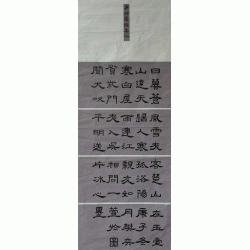 日暮蒼
山遠天
寒白屋
貧柴門
聞犬吠
風雪夜
歸人寒
雨連江
夜入吳
平明送
客楚山
孤洛陽
親友如
相問一
片冰心
在玉壺
庚子冬